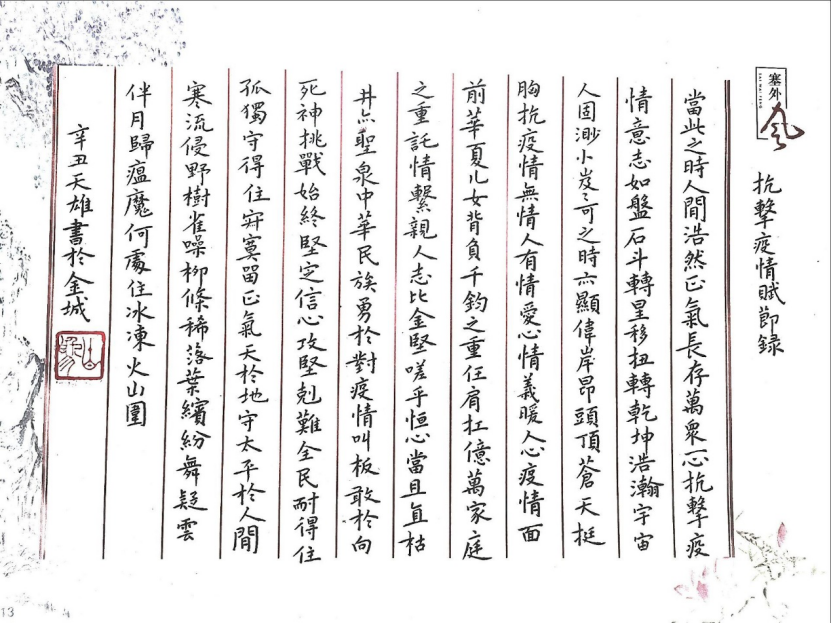 塞外
風
抗擊疫情賦節録
當此之時人間浩然正氣長存萬衆一心抗擊疫
情意志如盤石斗轉星移扭轉乾坤浩瀚宇宙
人固渺小岌岌可之時亦顯偉岸昂頭頂蒼天挺
胸抗疫情無情人有情愛心情義暖人心疫情面
前華夏儿女背負千鈞之重任肩扛億萬家庭
之重託情繫親人志比金堅嗟乎恒心當且直枯
井亦聖泉中華民族勇於對疫情叫板敢於向
死神挑戰始終堅定信心攻堅剋難全民耐得住
孤獨守得住寂寞留正氣天於地守太平於人間
寒流侵野樹雀噪柳條稀落葉繽紛舞疑雲
伴月歸瘟魔何處住冰凍火山圍
辛丑天雄書於金城
13